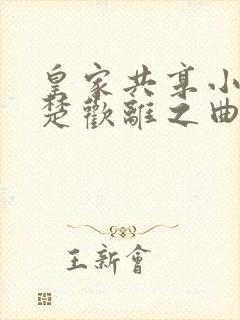 皇家共享小
楚歡離之曲
王新會